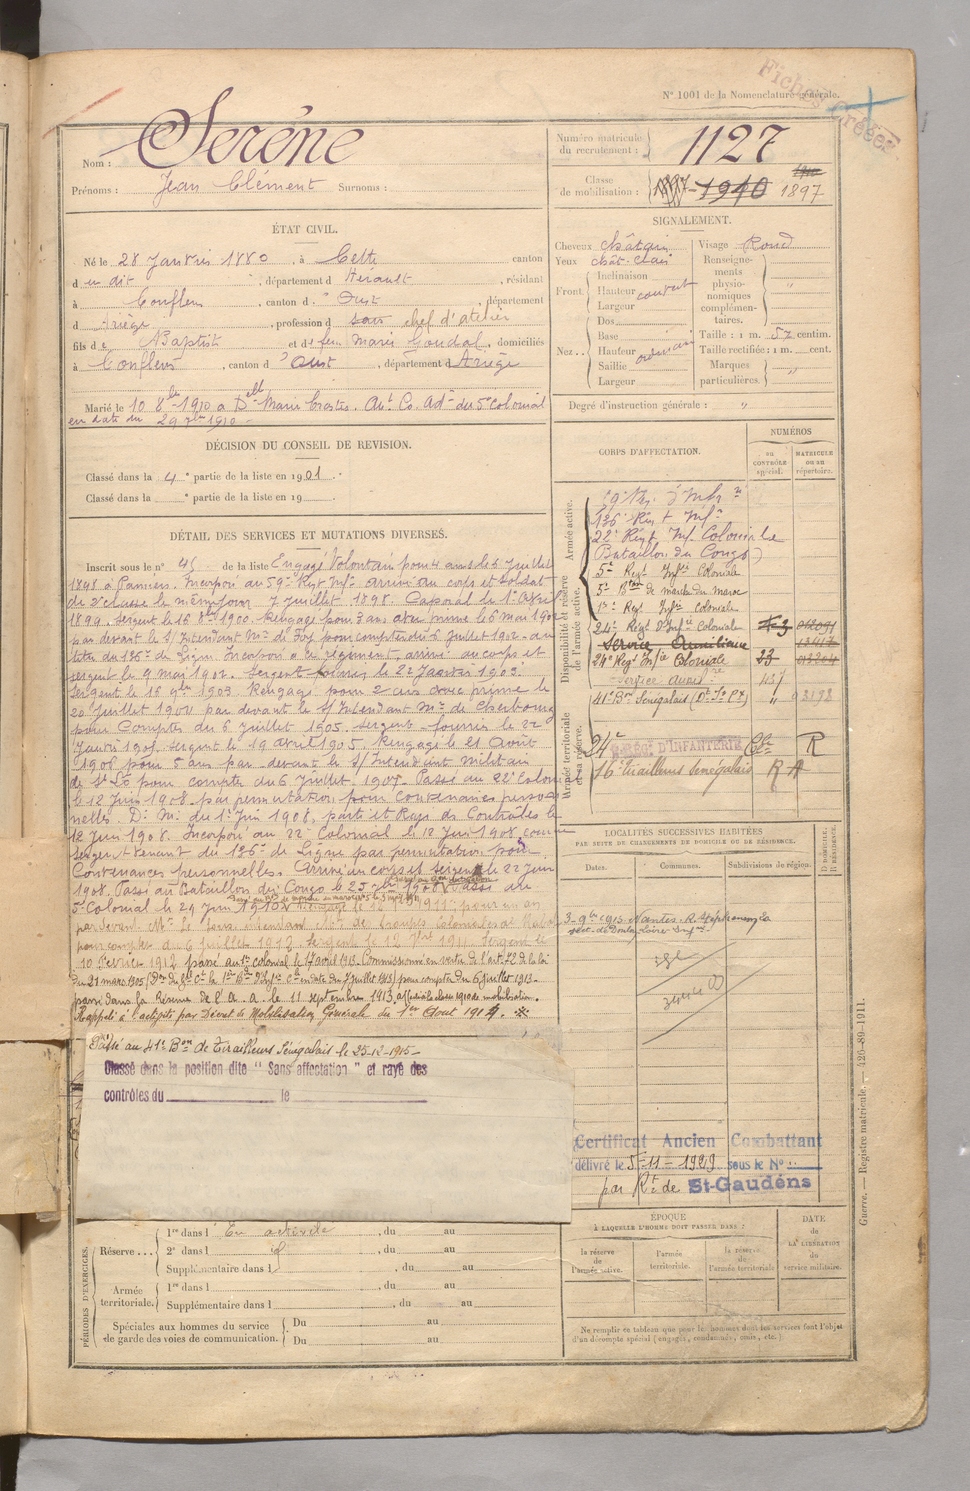 Fiches Créées
N° 1001 de la Nomenclature générale.
Nom : Seréne
Prénoms : Jean Clément Surnoms :
Numéro matricule du recrutement : 1127
Classe de mobilisation : 1897 1910 1910 1897
ÉTAT CIVIL.
Né le 28 Janvier 1880, à Cette canton
d u dit, département d Hérault, résidant
à Conflens, canton d'Oust, département
d Ariège, profession d sous chef d'atelier
fils de Baptiste et de feu Marie Goudal, domiciliés
à Conflens, canton d'Oust, département d Ariège
Marié le 10 8bre 1910 à Delle Marie Crastes. Aut. Co. Adon du 5e Colonial
en date du 29 7bre 1910
SIGNALEMENT.
Cheveux châtain
Yeux chât. clair
Front. Inclinaison
Hauteur couvert
Largeur
Nez. Dos
Base
Hauteur ordinaire
Saillie
Largeur
Visage Rond
Renseignements physionomiques complémentaires. "
Taille : 1 m. 57 centim.
Taille rectifiée : 1 m. cent.
Marques particulières. "
Degré d'instruction générale : "
DÉCISION DU CONSEIL DE REVISION.
Classé dans la 4e partie de la liste en 1901.
Classé dans la e partie de la liste en 19
DÉTAIL DES SERVICES ET MUTATIONS DIVERSES.
Inscrit sous le n° 45 de la liste Engagé Volontaire pour 4 ans le 6 Juillet
1898 à Pamiers. Incorporé au 59e Régt Infie arrivé au corps et soldat
de 2e classe le même jour 7 Juillet 1898. Caporal le 1er Avril
1899. Sergent le 16 8bre 1900. Rengagé pour 3 ans avec prime le 6 mai 1902
par devant le S/Intendant Mre de Foix pour compter du 6 Juillet 1902 au
titre du 136e de Ligne. Incorporé à ce régiment, arrivé au corps et
sergent le 9 mai 1902. Sergent fourrier le 22 Janvier 1903.
Sergent le 16 9bre 1903. Rengagé pour 2 ans avec prime le
20 Juillet 1904 par devant le S/Intendant Mre de Cherbourg
pour Compter du 6 Juillet 1905. Sergent fourrier le 22
Janvier 1905. Sergent le 19 avril 1905. Rengagé le 21 Août
1906 pour 5 ans par devant le S/Intendant militaire
de St Lô pour compter du 6 Juillet 1907. Passé au 22e Colonial
le 12 Juin 1908 par permutation pour convenances person
nelles. D. M. du 1er Juin 1908, parti et Rayé des Contrôles le
12 Juin 1908. Incorporé au 22e Colonial le 12 Juin 1908, comme
sergent venant du 136e de Ligne par permutation pour
Convenances personnelles. Arrivé au corps et sergent le 22 Juin
1908. Passé au Bataillon du Congo le 25 1908. Passé au
5e Colonial le 29 Juin 1910. Rengagé le 1911 pour un an
par devant Mr le Sous Intendant Mre des troupes coloniales
pour compter du 6 Juillet 1912. Sergent le 1911. Sergent le
10 février 1912 passé au 1er colonial le 17 avril 1913. Commissionné en vertu de l'art. 72 de la loi
du 21 mars 1905 en date du 7 juillet 1913) pour compter du 6 juillet 1913.
passé dans la Réserve de l'A. a. le 11 septembre 1913, affecté à la classe 1910 de mobilisation.
Rappelé à l'activité par Décret de Mobilisation Générale du 1er Août 1914.
Passé au 41e Bon de Tirailleurs Sénégalais le 25-12-1915
Classé dans la position dite "Sans affectation" et rayé des
contrôles du le
CORPS D'AFFECTATION.
NUMÉROS
au CONTRÔLE spécial.
MATRICULE ou au répertoire.
Disponibilité et réserve de l'armée active.
Armée active.
59e Rég. d'Infie
136e Régt Infie
22e Régt Inf. Coloniale
(Bataillon du Congo)
5e Régt Infie Coloniale
5e Bon de marche du Maroc
1er Régt Infie coloniale
24e Régt d'Infie Coloniale
Service Auxiliaire
24e Régt Infie Coloniale 23
Service auxil. 437
41e Bon Sénégalais " 03198
Armée territoriale et sa réserve.
24e RÉGt D'INFANTERIE Cle R
16e tirailleurs Sénégalais R A
LOCALITÉS SUCCESSIVES HABITÉES
PAR SUITE DE CHANGEMENTS DE DOMICILE OU DE RÉSIDENCE.
Dates. Communes. Subdivisions de région. D DOMICILE. R RÉSIDENCE.
3 9bre 1913 Nantes
Certificat Ancien Combattant
délivré le 5-11-1929 sous le N°
par Rt de St-Gaudens
PÉRIODES D'EXERCICES.
Réserve ... 1re dans l En activité, du au
2e dans l do, du au
Supplémentaire dans l, du au
Armée territoriale. 1re dans l, du au
Supplémentaire dans l, du au
Spéciales aux hommes du service de garde des voies de communication. Du au
Du au
ÉPOQUE
À LAQUELLE L'HOMME DOIT PASSER DANS :
la réserve de l'armée active.
l'armée territoriale.
la réserve de l'armée territoriale
DATE de LA LIBÉRATION du service militaire.
Ne remplir ce tableau que pour les hommes dont les services font l'objet
d'un décompte spécial (engagés, condamnés, omis, etc.)
Guerre. — Registre matricule. — 426-89-1911.